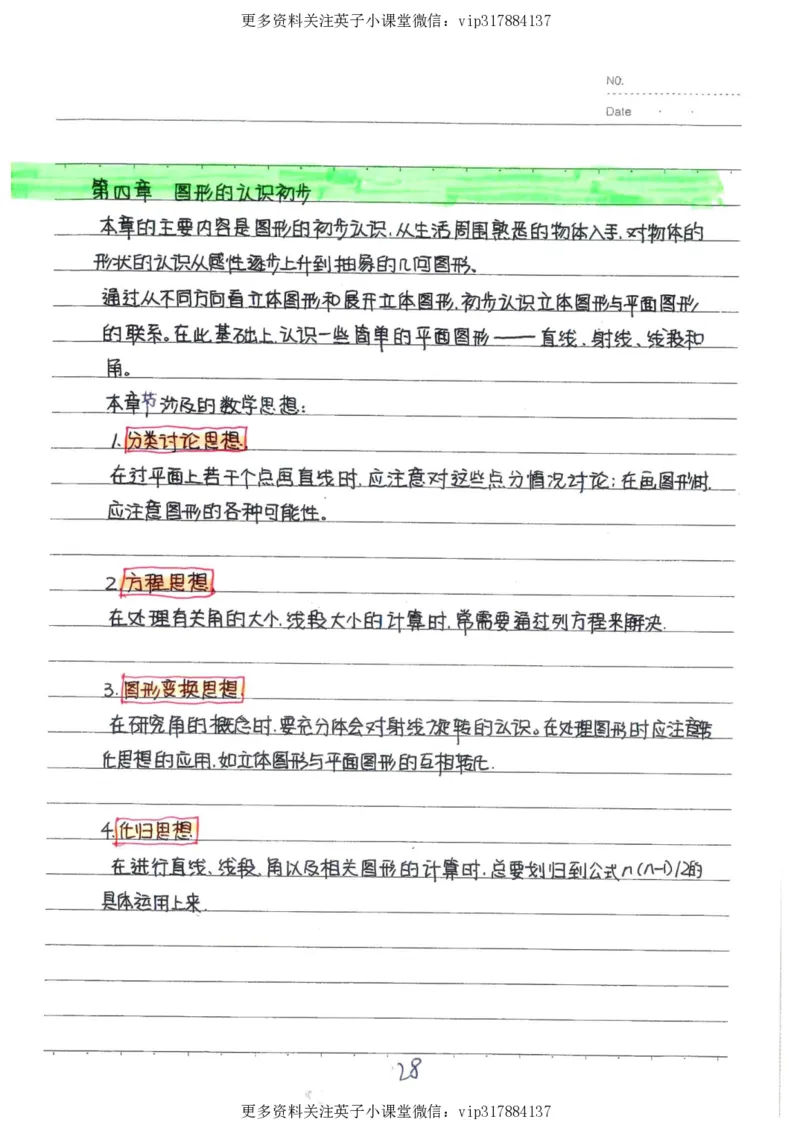 更多资料关注英子小课堂微信：vip317884137
NO.
Date
第四章 图形的认识初步
本章的主要内容是图形的初步认识,从生活周围熟悉的物体入手,对物体的
形状的认识从感性逐步上升到抽象的几何图形。
通过从不同方向看立体图形和展开立体图形,初步认识立体图形与平面图形
的联系。在此基础上,认识一些简单的平面图形——直线、射线、线段和
角。
本章节涉及的数学思想:
1.分类讨论思想.
在过平面上若干个点画直线时,应注意对这些点分情况讨论;在画图形时,
应注意图形的各种可能性。
2.方程思想.
在处理有关角的大小,线段大小的计算时,常需要通过列方程来解决.
3.图形变换思想.
在研究角的概念时,要充分体会对射线旋转的认识。在处理图形时应注意转
化思想的应用,如立体图形与平面图形的互相转化.
4.化归思想.
在进行直线、线段、角以及相关图形的计算时,总要划归到公式n(n-1)/2的
具体运用上来.
28
更多资料关注英子小课堂微信：vip317884137